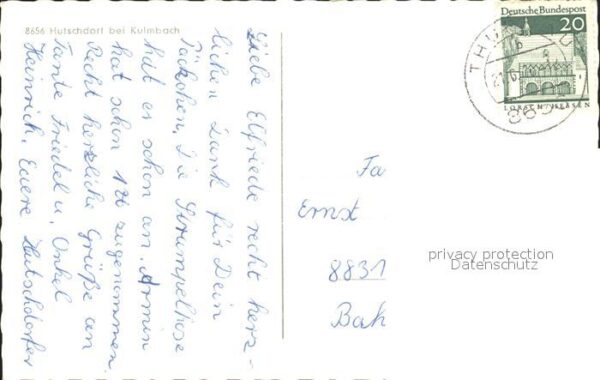 8656 Hutschdorf bei Kulmbach
Liebe Elfriede recht herz-
lichen Dank für Dein
Päckchen, Die Strumpelhose
hat es schon an. Armin
hat schon zugenommen.
Recht herzliche Grüße an
Tante Friedel u. Onkel
Heinrich. Euere Hutschdorfer
Deutsche Bundespost
20
LORSCH/HESSEN
THU
865
Fa
Ernst
8831
privacy protection
Datenschutz